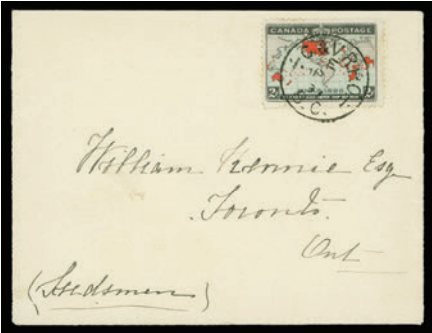 CANADA POSTAGE
XMAS 1898
2
William Rennie Esq
Toronto.
Ont
(Seedsmen)